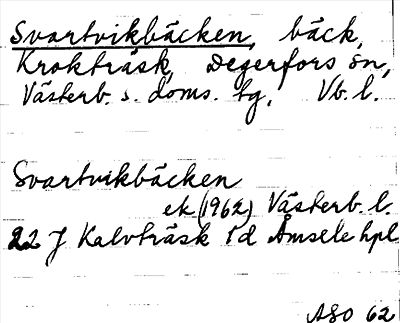 Svartvikbäcken, bäck,
Krokträsk, Degerfors sn,
Västerb. s. doms. tg, Vb. l.
Svartvikbäcken
ek (1962) Västerb. l.
22 J Kalvträsk 1 d Åmsele hpl
ASO 62